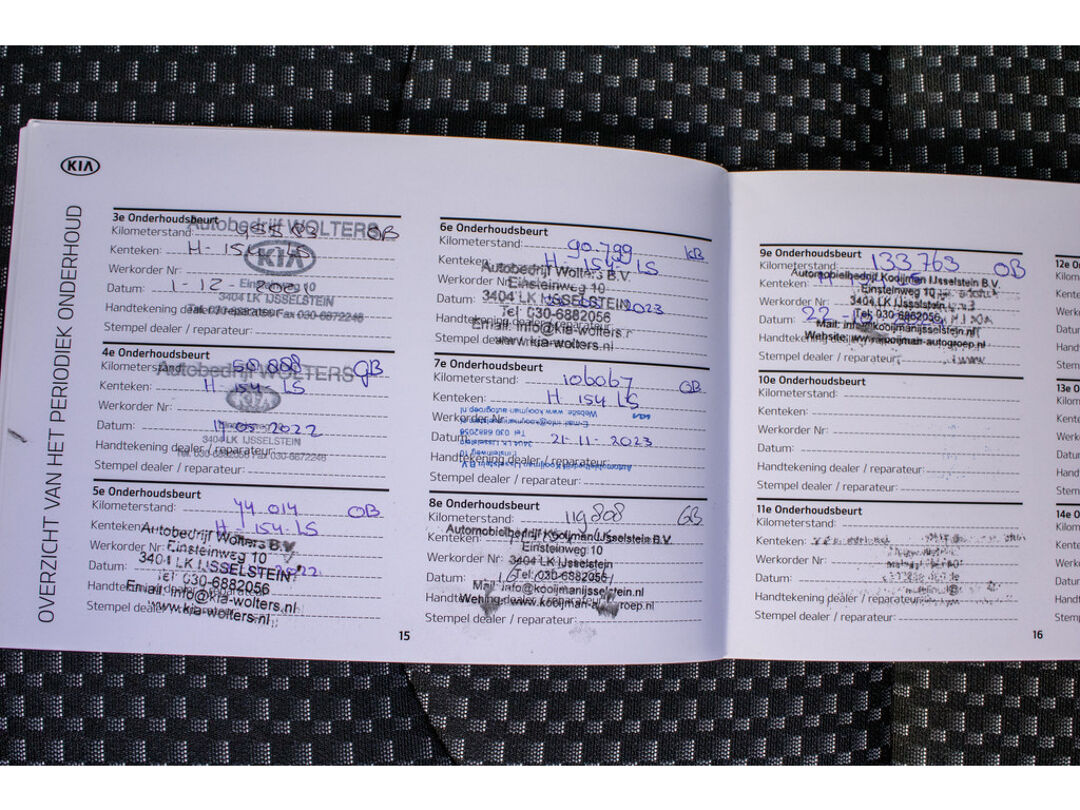 KIA
OVERZICHT VAN HET PERIODIEK ONDERHOUD
3e Onderhoudsbeurt
Autobedrijf WOLTERS
Kilometerstand: OB
Kenteken: H-154-LS
KIA
Werkorder Nr
Einsteinweg 10
Datum: 1-12-
3404 LK IJSSELSTEIN
Handtekening dealer/reparateur:
Fax 030-6872246
Stempel dealer / reparateur:
4e Onderhoudsbeurt
Kilometerstand: 60.888 GB
Autobedrijf WOLTERS
Kenteken: H-154-LS
Werkorder Nr:
Datum: 2022
3404 LK IJSSELSTEIN
Handtekening dealer / reparateur:
Fax 030-6872246
Stempel dealer / reparateur:
5e Onderhoudsbeurt
Kilometerstand: 014 OB
Kenteken: H-154-LS
Autobedrijf Wolters B.V.
Werkorder Nr:
Einsteinweg 10
3404 LK IJSSELSTEIN
Datum:
Tel 030-6882056
Handtekening dealer / reparateur:
Email: info@kia-wolters.nl
Stempel dealer / reparateur:
www.kia-wolters.nl
15
6e Onderhoudsbeurt
Kilometerstand: 90.799 KB
Kenteken: H-154-LS
Autobedrijf Wolters B.V.
Werkorder Nr:
Einsteinweg 10
Datum: 2023
3404 LK IJSSELSTEIN
Tel 030-6882056
Handtekening dealer / reparateur:
Email: info@kia-wolters.nl
Stempel dealer / reparateur:
www.kia-wolters.nl
7e Onderhoudsbeurt
Kilometerstand: 106067 OB
Kenteken: H 154 LS
Website www.kooijman-autogroep.nl
Werkorder Nr:
Tel 030 6882056
Datum: 21-11-2023
3404 LK IJsselstein
Einsteinweg 10
Handtekening dealer / reparateur:
Automobielbedrijf Kooijman IJsselstein B.V.
Stempel dealer / reparateur:
8e Onderhoudsbeurt
Kilometerstand: 119808 GB
Kenteken:
Automobielbedrijf Kooijman IJsselstein B.V.
Einsteinweg 10
Werkorder Nr:
3404 LK IJsselstein
Datum: 16
Tel: 030-6882056
Mail: info@kooijmanijsselstein.nl
Handtekening dealer / reparateur:
www.kooijman-autogroep.nl
Stempel dealer / reparateur:
9e Onderhoudsbeurt
Kilometerstand: 133763 OB
Kenteken:
Automobielbedrijf Kooijman IJsselstein B.V.
Einsteinweg 10
Werkorder Nr:
3404 LK IJsselstein
Datum: 22
Tel: 030-6882056
Mail: info@kooijmanijsselstein.nl
Handtekening
Website: www.kooijman-autogroep.nl
Stempel dealer / reparateur:
10e Onderhoudsbeurt
Kilometerstand:
Kenteken:
Werkorder Nr:
Datum:
Handtekening dealer / reparateur:
Stempel dealer / reparateur:
11e Onderhoudsbeurt
Kilometerstand:
Kenteken:
Werkorder Nr:
Datum:
Handtekening dealer / reparateur:
Stempel dealer / reparateur:
16
12e On
Kilome
Kente
Werk
Datu
Hand
Stem
13e O
Kilom
Kent
Wer
Datu
Han
Ster
14e O
Kilon
Ken
We
Dat
Han
Ste